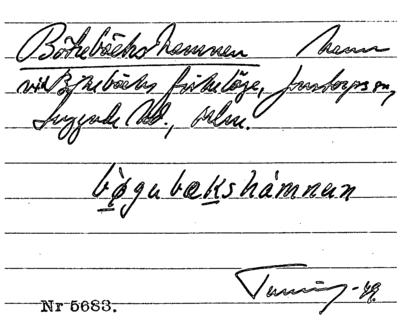 Bökebäckshamnen hamn
vid Bökebäcks fiskeläge, Jonstorps sn,
Luggude hd., Mlm.
bø̀gubækshámnun
-49.
Nr 5683.